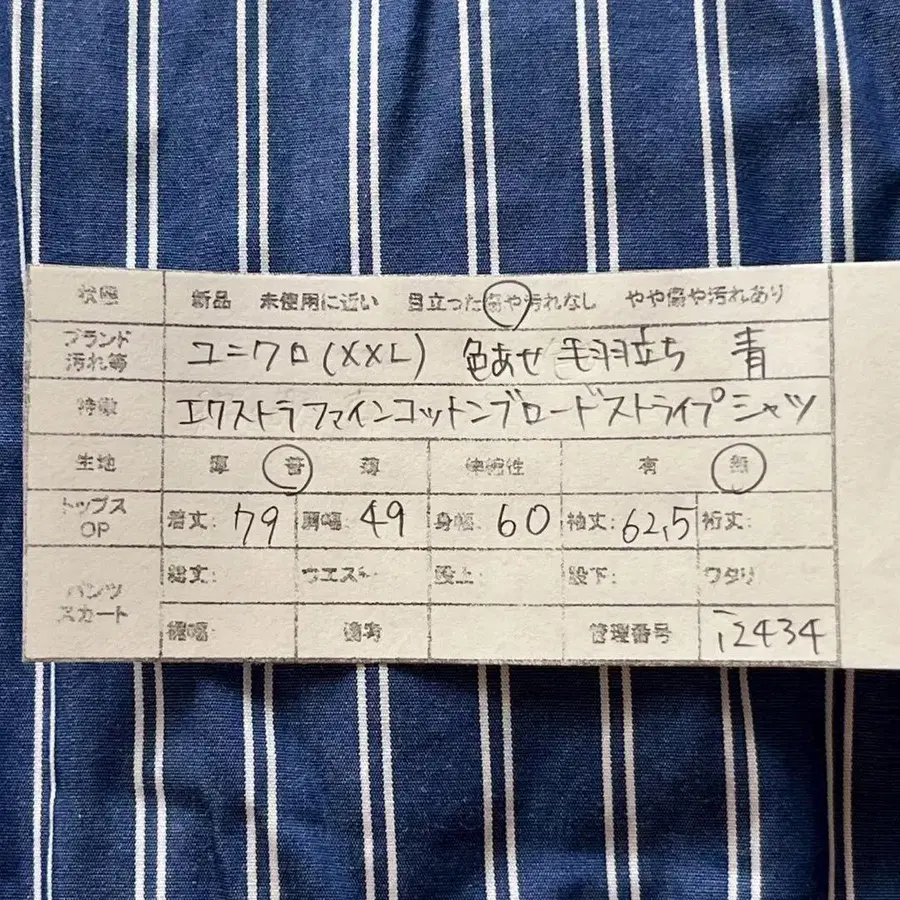 状態 新品 未使用に近い 目立った傷や汚れなし やや傷や汚れあり
ブランド
汚れ等 ユニクロ(XXL) 色あせ 毛羽立ち 青
特徴 エクストラファインコットンブロードストライプシャツ
生地 厚 普 薄 伸縮性 有 無
トップス
OP 着丈: 79 肩幅: 49 身幅: 60 袖丈: 62,5 裄丈:
パンツ
スカート 総丈: ウエスト 股上: 股下: ワタリ
裾幅: 備考 管理番号 i2434